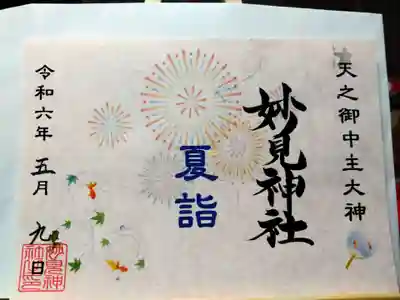 天之御中主大神
妙見神社
夏詣
令和六年五月九日
妙見神
社之印